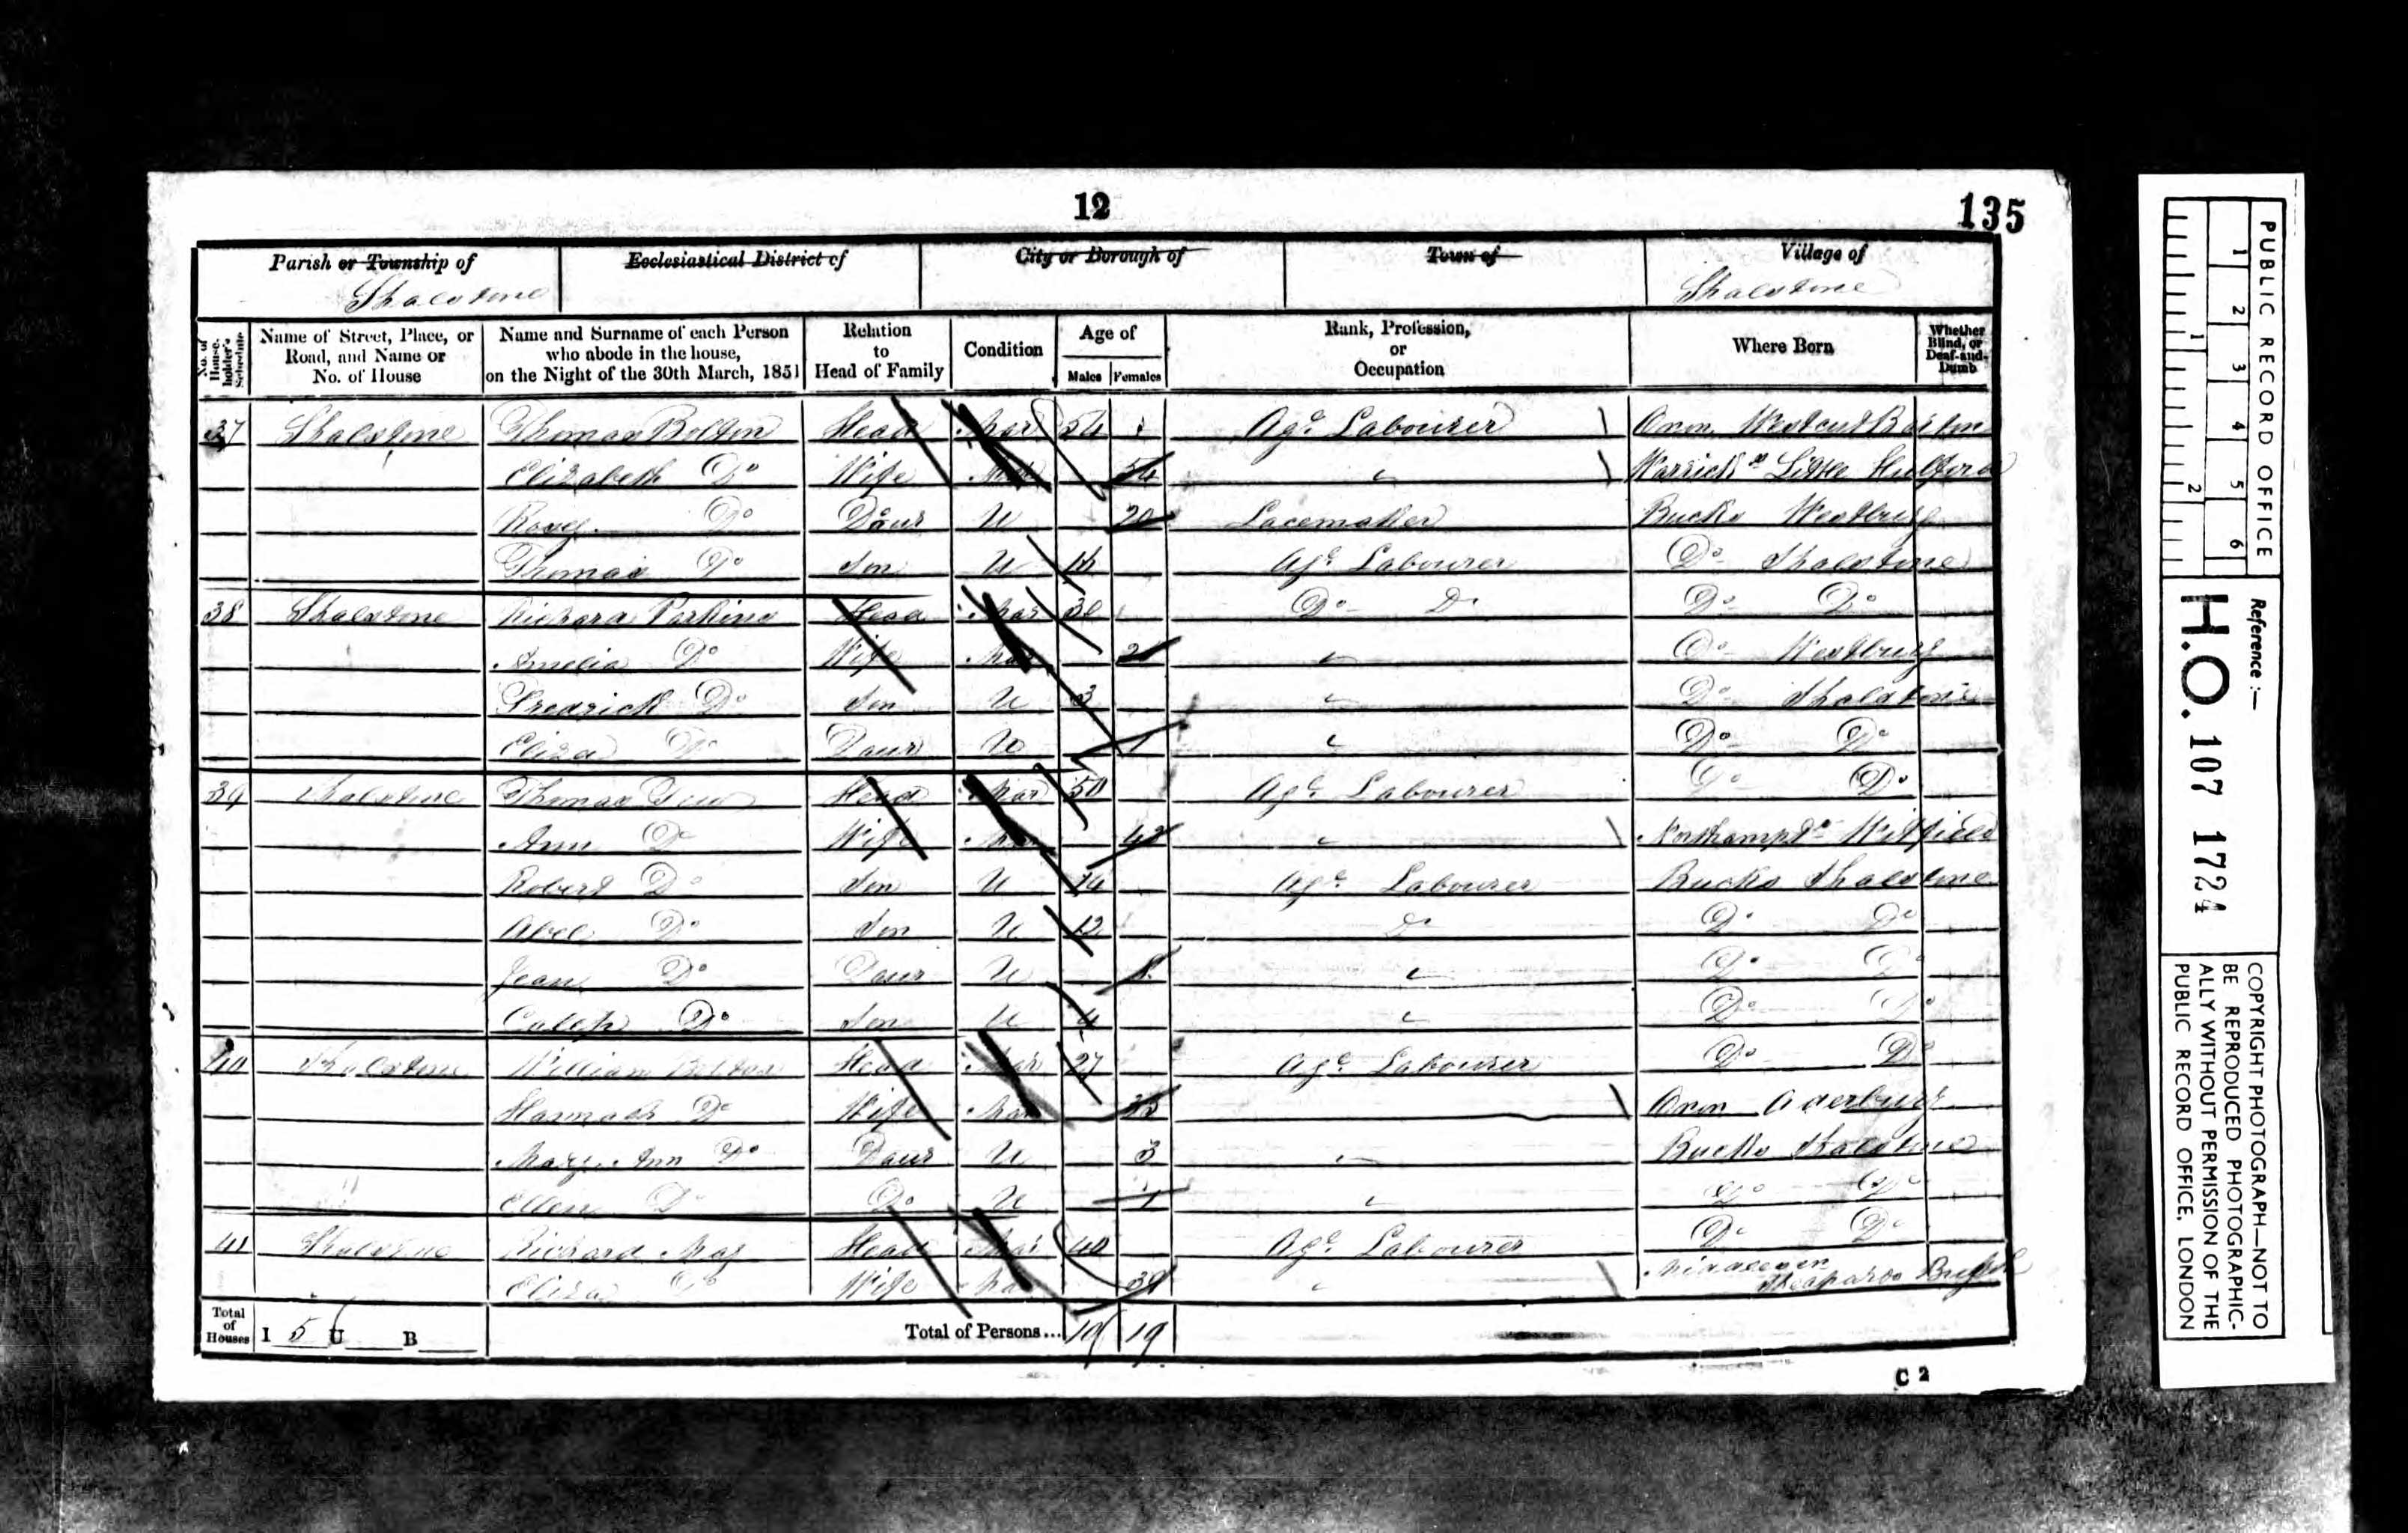 12
135
Parish or Township of Ecclesiastical District of City or Borough of Town of Village of
Shalstone Shalstone
No. of House-holder's Schedule
Name of Street, Place, or Road, and Name or No. of House
Name and Surname of each Person who abode in the house, on the Night of the 30th March, 1851
Relation to Head of Family
Condition
Age of
Males Females
Rank, Profession, or Occupation
Where Born
Whether Blind, or Deaf-and-Dumb
37 Shalstone Thomas Bolton Head Mar 54 Agl Labourer Oxon Westcut Barton
Elizabeth Do Wife Mar 54 Little
Do Daur U 20 Lacemaker Bucks Westbury
Thomas Do Son U Agl Labourer Do Shalstone
38 Shalstone Richard Perkins Head Mar Do Do Do Do
Amelia Do Wife Mar Do Westbury
Fredrick Do Son U 3 Do Shalstone
Eliza Do Daur U 1 Do Do
39 Shalstone Thomas Head Mar 50 Agl Labourer Do Do
Ann Do Wife Mar 42 Witfield
Robert Do Son U 14 Agl Labourer Bucks Shalstone
Abel Do Son U 12 Do Do Do
Jean Do Daur U 8 Do Do
Caleb Do Son U 4 Do Do
40 Shalstone William Bolton Head Mar 27 Agl Labourer Do Do
Hannah Do Wife Mar Oxon Aderbury
Mary Ann Do Daur U 3 Bucks Shalstone
Ellen Do Do U 1 Do Do
41 Shalstone Richard May Head Mar 40 Agl Labourer Do Do
Eliza Do Wife Mar Middlesex
Total of Houses I 5 U B Total of Persons... 10 19
C 2
PUBLIC RECORD OFFICE
1 2 3 4 5 6
1 2
Reference :—
H.O. 107 1724
COPYRIGHT PHOTOGRAPH—NOT TO
BE REPRODUCED PHOTOGRAPHIC-
ALLY WITHOUT PERMISSION OF THE
PUBLIC RECORD OFFICE, LONDON